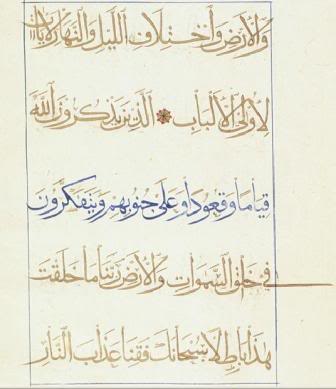 والأرض واختلاف الليل والنهار لآيات
لأولي الألباب الذين يذكرون الله
قياما وقعودا وعلى جنوبهم ويتفكرون
في خلق السموات والأرض ربنا ما خلقت
هذا باطلا سبحانك فقنا عذاب النار